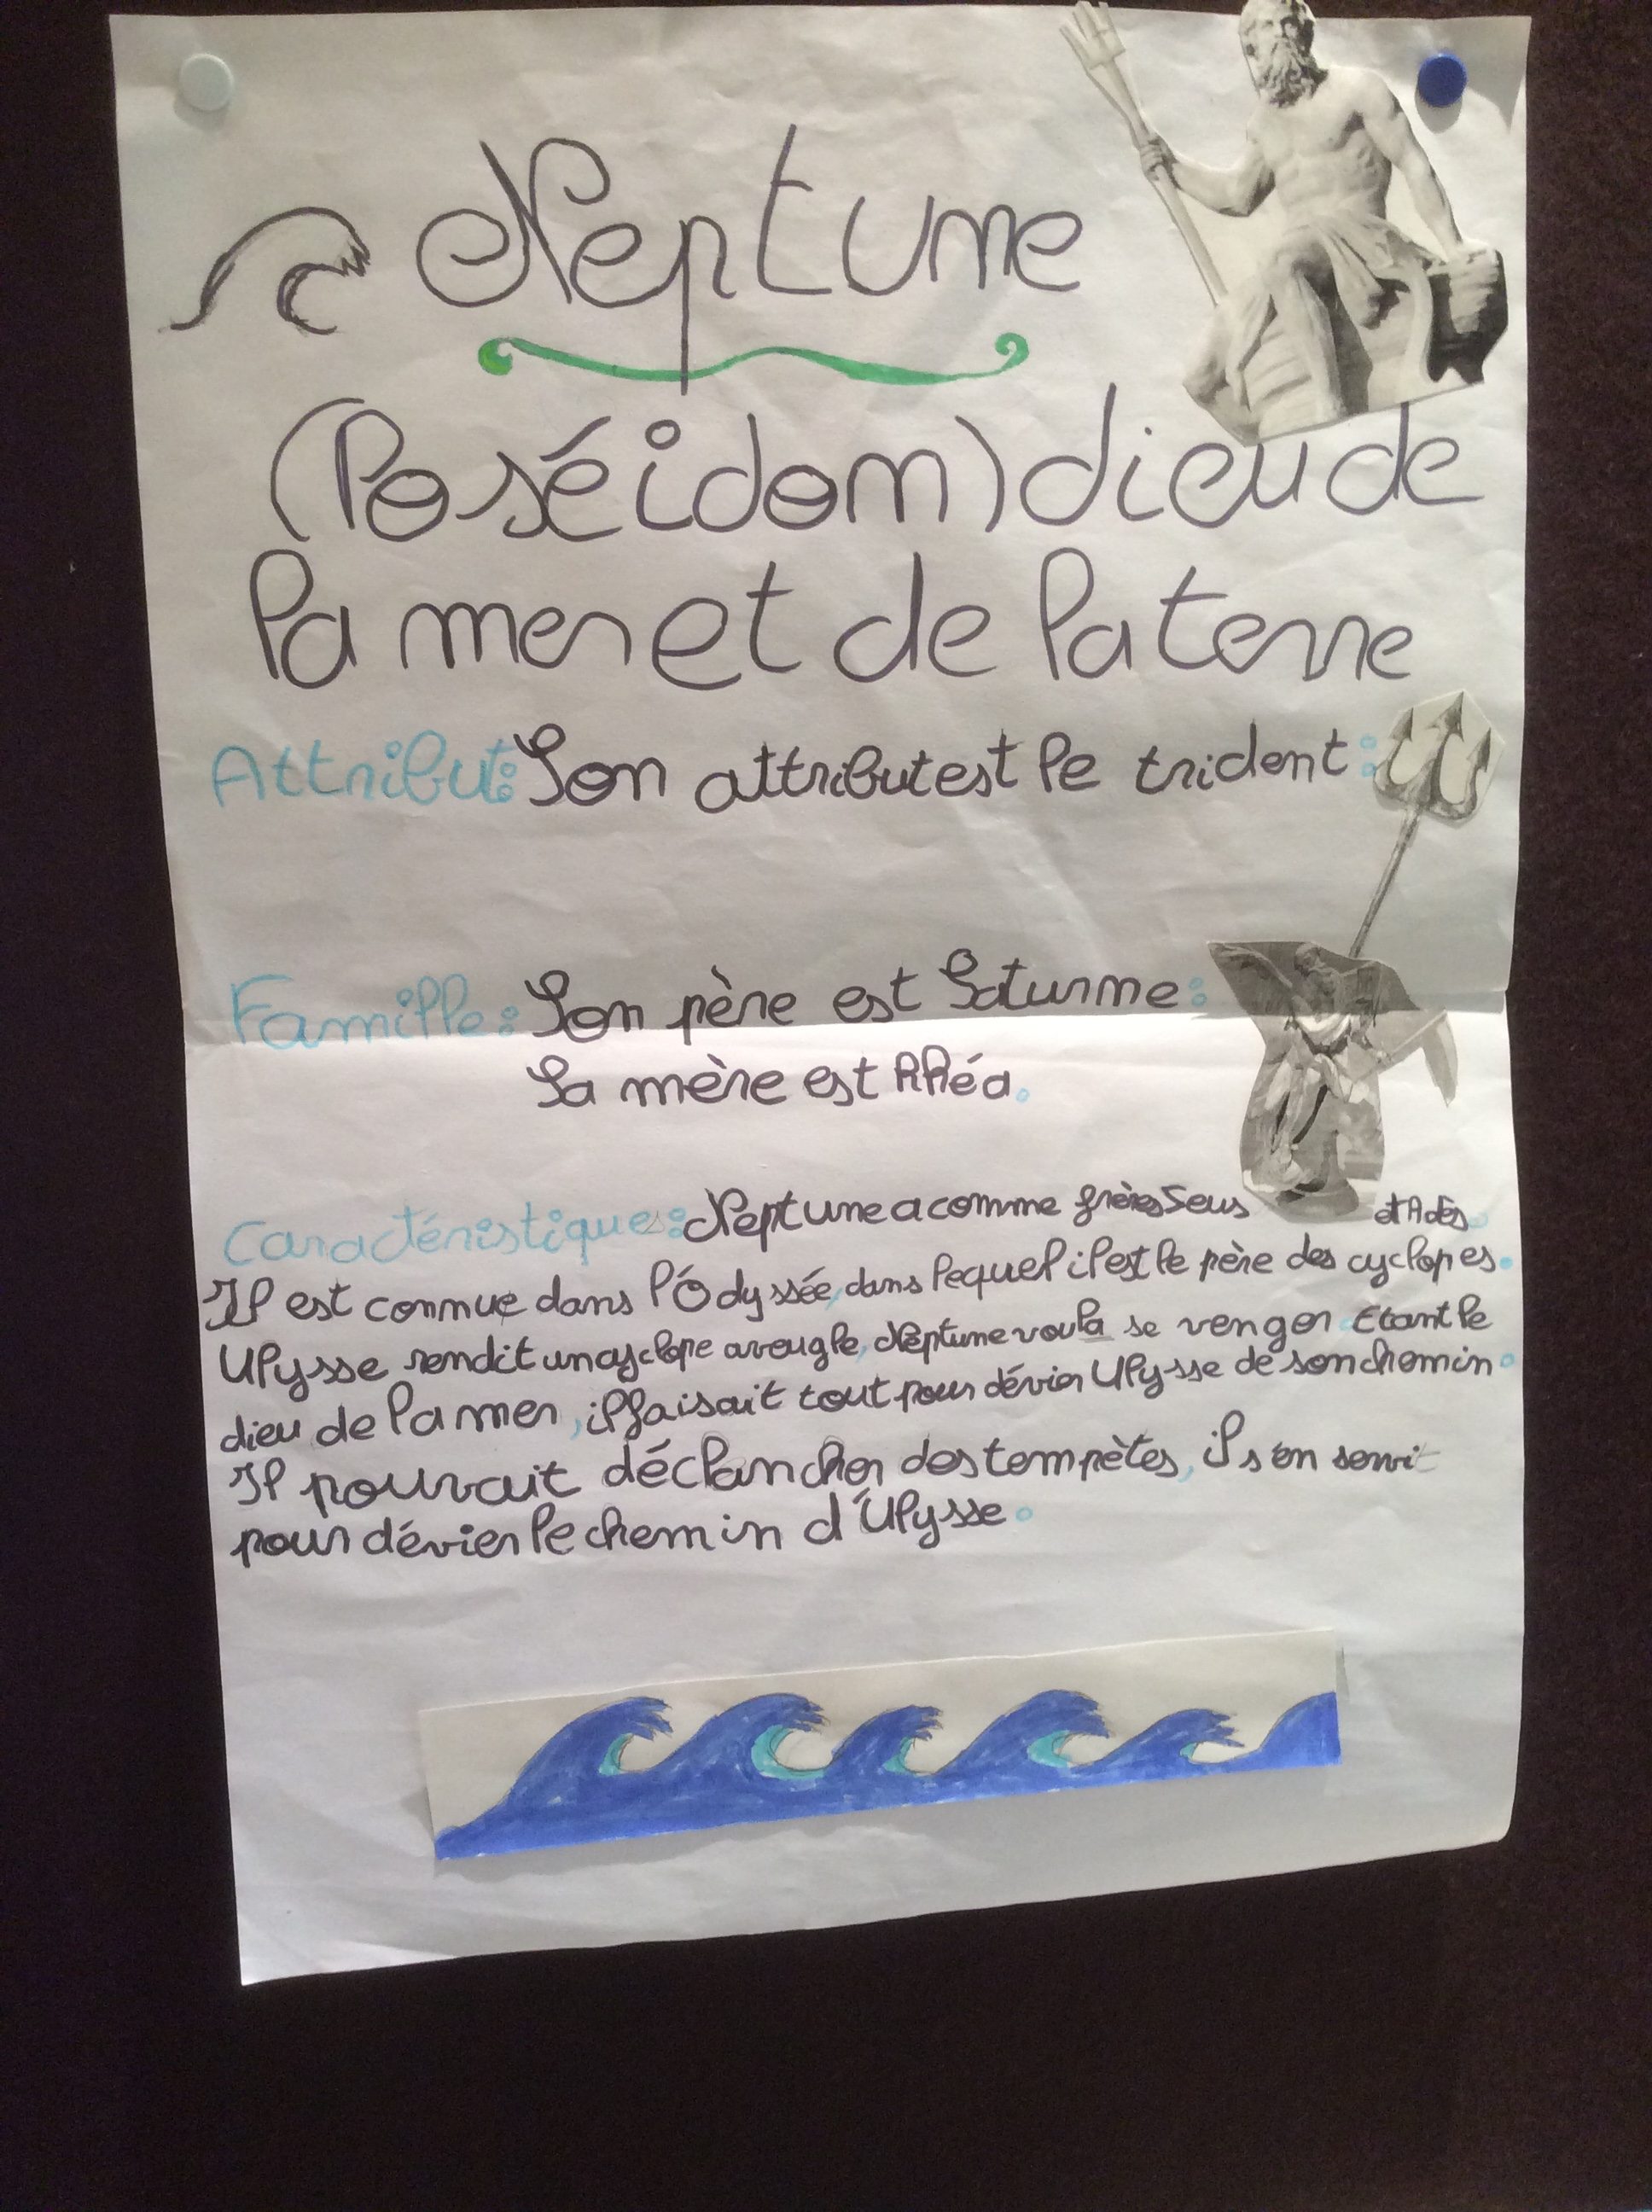 Neptune
(Poséidon) dieu de
la mer et de la terre
Attribut: Son attribut est le trident:
Famille: Son père est Saturne:
Sa mère est Rhéa.
Caractéristiques: Neptune a comme frères Seus et Adès.
Il est connue dans l'Ódyssée, dans lequel il est le père des cyclopes.
Ulysse rendit un cyclope aveugle, Neptune voula se venger. Etant le
dieu de la mer, il faisait tout pour dévier Ulysse de son chemin.
Il pouvait déclancher des tempètes, il s'en servit
pour dévier le chemin d'Ulysse.